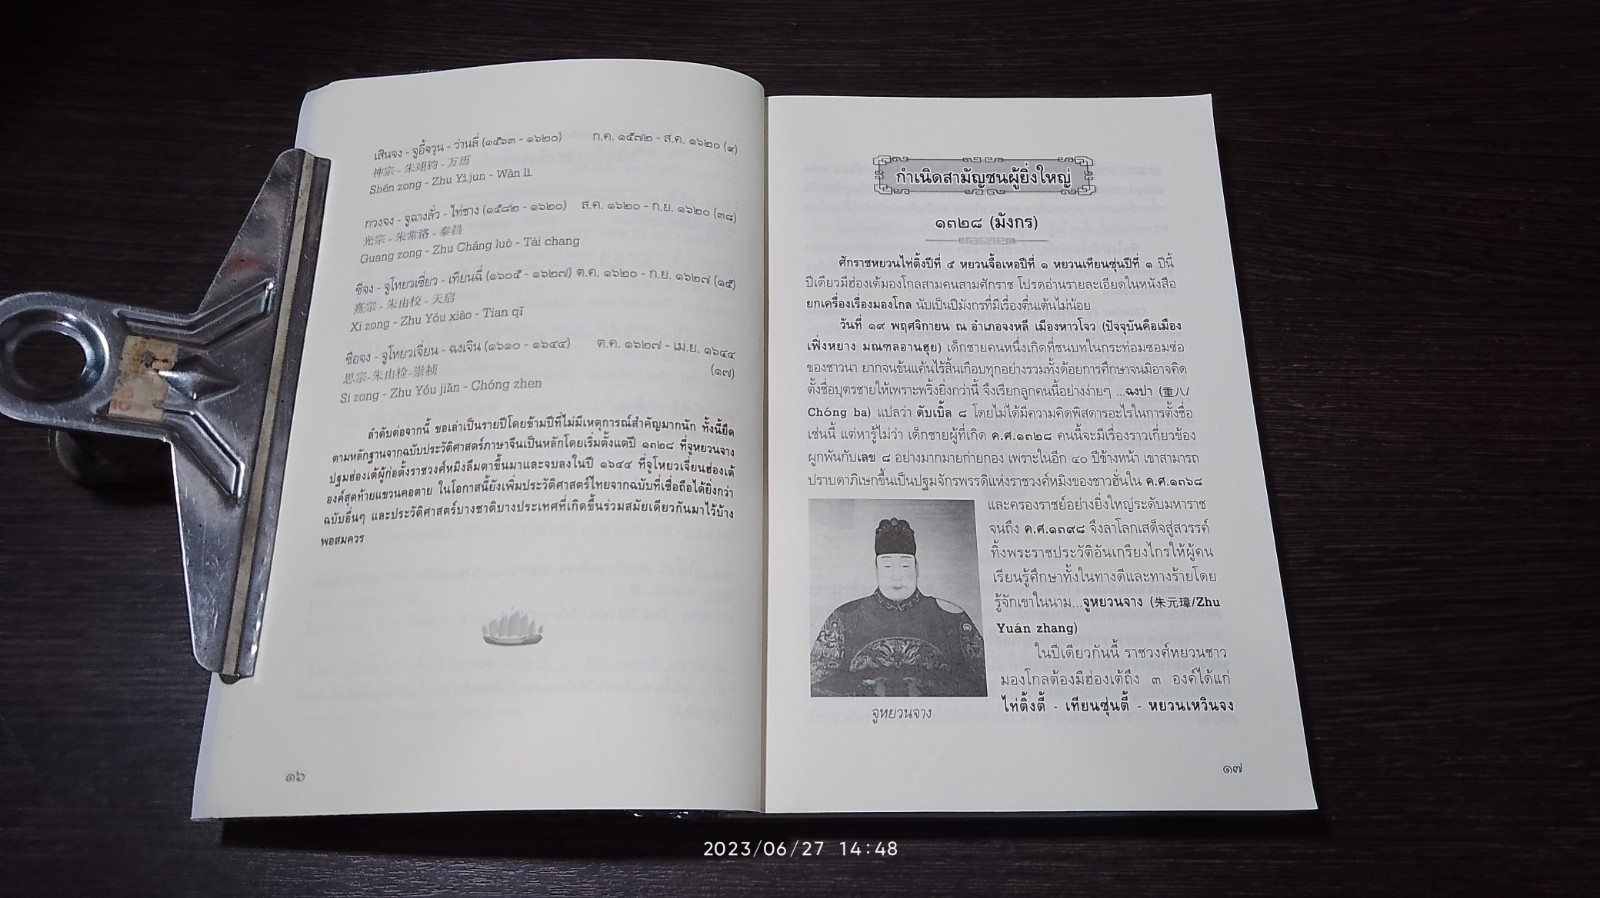 เสินจง - จูอี้จวุน - ว่านลี่ (๑๕๖๓ - ๑๖๒๐) ก.ค. ๑๕๗๒ - ส.ค. ๑๖๒๐ (๙)
神宗 - 朱翊钧 - 万历
Shén zong - Zhu Yì jun - Wàn lì
กวงจง - จูฉางลั่ว - ไท่ชาง (๑๕๘๒ - ๑๖๒๐) ส.ค. ๑๖๒๐ - ก.ย. ๑๖๒๐ (๓๘)
光宗 - 朱常洛 - 泰昌
Guang zong - Zhu Cháng luò - Tài chang
ซีจง - จูโหยวเซี่ยว - เทียนฉี่ (๑๖๐๕ - ๑๖๒๗) ต.ค. ๑๖๒๐ - ก.ย. ๑๖๒๗ (๑๕)
熹宗 - 朱由校 - 天启
Xi zong - Zhu Yóu xiào - Tian qǐ
ซือจง - จูโหยวเจี่ยน - ฉงเจิน (๑๖๑๐ - ๑๖๔๔) ต.ค. ๑๖๒๗ - เม.ย. ๑๖๔๔
思宗-朱由检-崇祯 (๑๗)
Si zong - Zhu Yóu jiǎn - Chóng zhen
ลำดับต่อจากนี้ ขอเล่าเป็นรายปีโดยข้ามปีที่ไม่มีเหตุการณ์สำคัญมากนัก ทั้งนี้ยึด
ตามหลักฐานจากฉบับประวัติศาสตร์ภาษาจีนเป็นหลักโดยเริ่มตั้งแต่ปี ๑๓๒๘ ที่จูหยวนจาง
ปฐมฮ่องเต้ผู้ก่อตั้งราชวงศ์หมิงลืมตาขึ้นมาและจบลงในปี ๑๖๔๔ ที่จูโหยวเจี่ยนฮ่องเต้
องค์สุดท้ายแขวนคอตาย ในโอกาสนี้ยังเพิ่มประวัติศาสตร์ไทยจากฉบับที่เชื่อถือได้ยิ่งกว่า
ฉบับอื่นๆ และประวัติศาสตร์บางชาติบางประเทศที่เกิดขึ้นร่วมสมัยเดียวกันมาไว้บ้าง
พอสมควร
๑๖
กำเนิดสามัญชนผู้ยิ่งใหญ่
๑๓๒๘ (มังกร)
ศักราชหยวนไท่ติ้งปีที่ ๕ หยวนจื้อเหอปีที่ ๑ หยวนเทียนซุ่นปีที่ ๑ ปีนี้
ปีเดียวมีฮ่องเต้มองโกลสามคนสามศักราช โปรดอ่านรายละเอียดในหนังสือ
ยกเครื่องเรื่องมองโกล นับเป็นปีมังกรที่มีเรื่องตื่นเต้นไม่น้อย
วันที่ ๑๙ พฤศจิกายน ณ อำเภอจงหลี เมืองหาวโจว (ปัจจุบันคือเมือง
เฟิ่งหยาง มณฑลอานฮุย) เด็กชายคนหนึ่งเกิดที่ชนบทในกระท่อมซอมซ่อ
ของชาวนา ยากจนข้นแค้นไร้สิ้นเกือบทุกอย่างรวมทั้งด้อยการศึกษาจนมิอาจคิด
ตั้งชื่อบุตรชายให้เพราะพริ้งยิ่งกว่านี้ จึงเรียกลูกคนนี้อย่างง่ายๆ ...ฉงปา (重八/
Chóng ba) แปลว่า ดับเบิ้ล ๘ โดยไม่ได้มีความคิดพิสดารอะไรในการตั้งชื่อ
เช่นนี้ แต่หารู้ไม่ว่า เด็กชายผู้ที่เกิด ค.ศ.๑๓๒๘ คนนี้จะมีเรื่องราวเกี่ยวข้อง
ผูกพันกับเลข ๘ อย่างมากมายก่ายกอง เพราะในอีก ๔๐ ปีข้างหน้า เขาสามารถ
ปราบดาภิเษกขึ้นเป็นปฐมจักรพรรดิแห่งราชวงศ์หมิงของชาวฮั่นใน ค.ศ.๑๓๖๘
และครองราชย์อย่างยิ่งใหญ่ระดับมหาราช
จนถึง ค.ศ.๑๓๙๘ จึงลาโลกเสด็จสู่สวรรค์
ทิ้งพระราชประวัติอันเกรียงไกรให้ผู้คน
เรียนรู้ศึกษาทั้งในทางดีและทางร้ายโดย
รู้จักเขาในนาม...จูหยวนจาง (朱元璋/Zhu
Yuán zhang)
ในปีเดียวกันนี้ ราชวงศ์หยวนชาว
มองโกลต้องมีฮ่องเต้ถึง ๓ องค์ได้แก่
ไท่ติ้งตี้ - เทียนซุ่นตี้ - หยวนเหวินจง
จูหยวนจาง
๑๗
2023/06/27 14:48